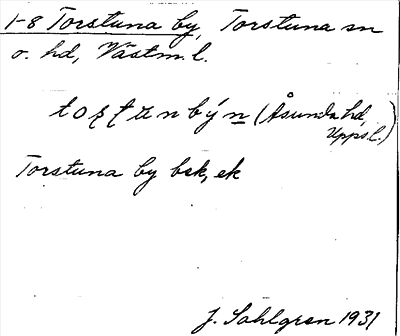 1-8 Torstuna by, Torstuna sn
o. hd, Västm. l.
(Åsunda hd,
Upps.l.)
Torstuna by bsk, ek
J. Sahlgren 1931